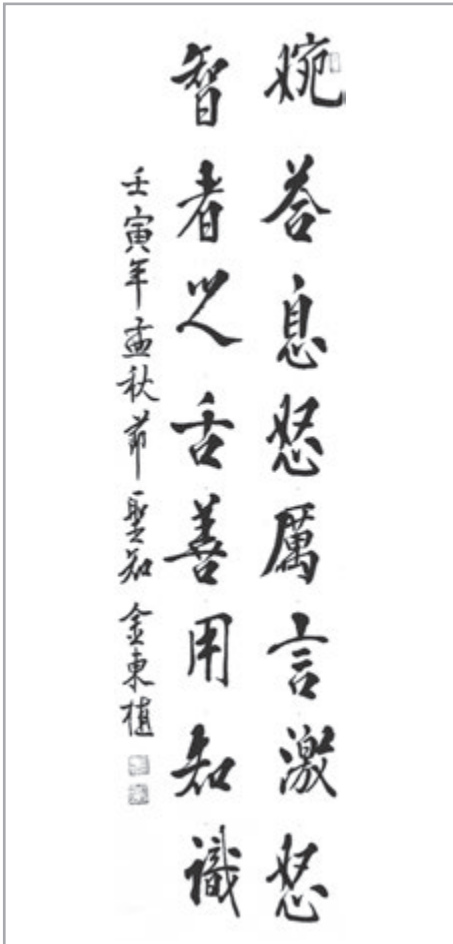 婉荅息怒厲言激怒
智者之舌善用知識
壬寅年孟秋節 聖知 金東植